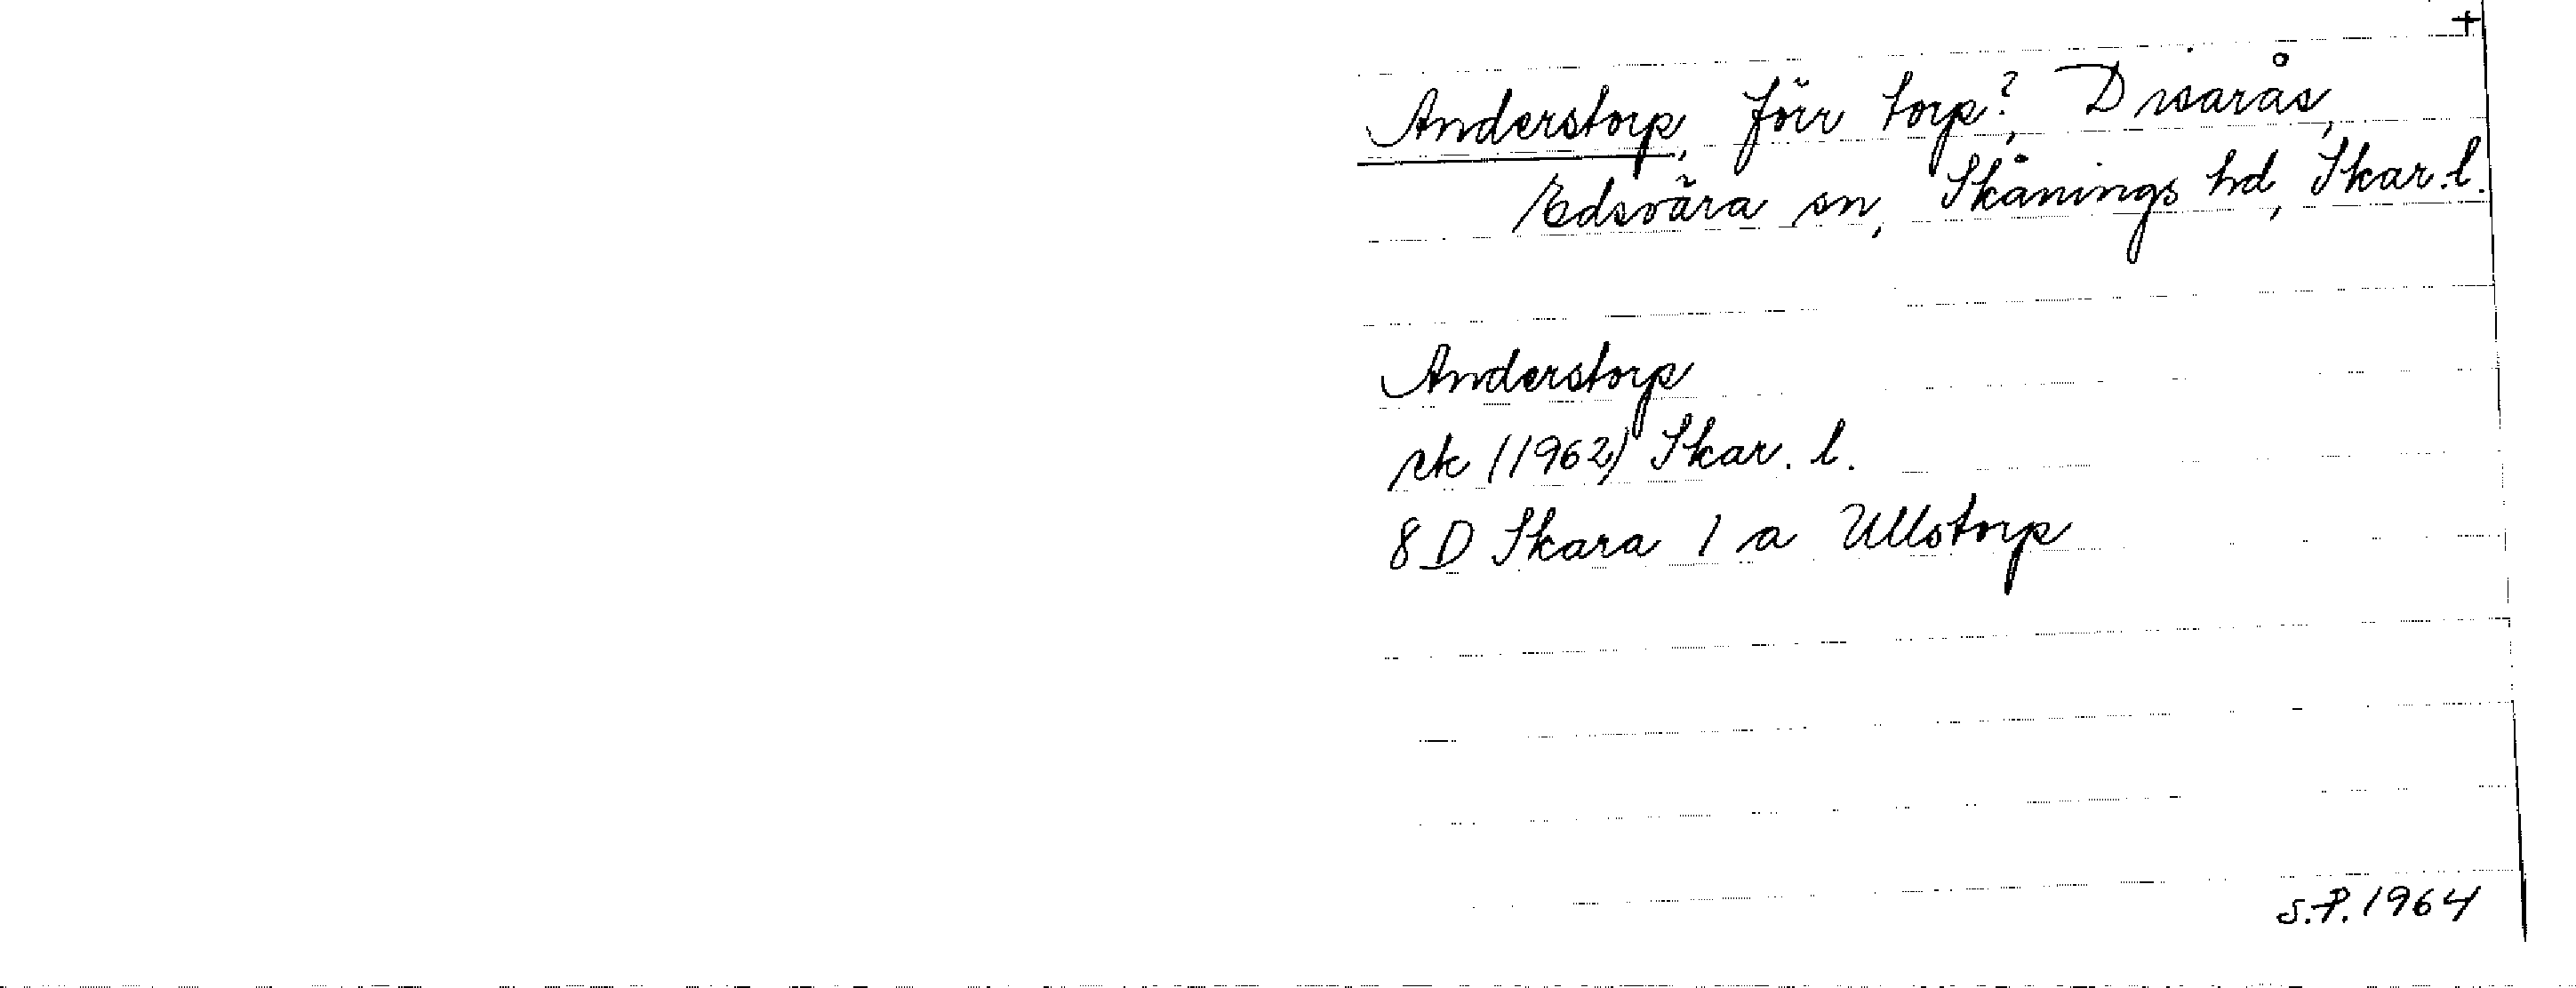 +
Anderstorp, förr torp?, Disarås,
Edsvära sn, Skånings hd, Skar. l.
Anderstorp
rk (1962) Skar. l.
8 D Skara 1 a Ullstorp
S.P. 1964